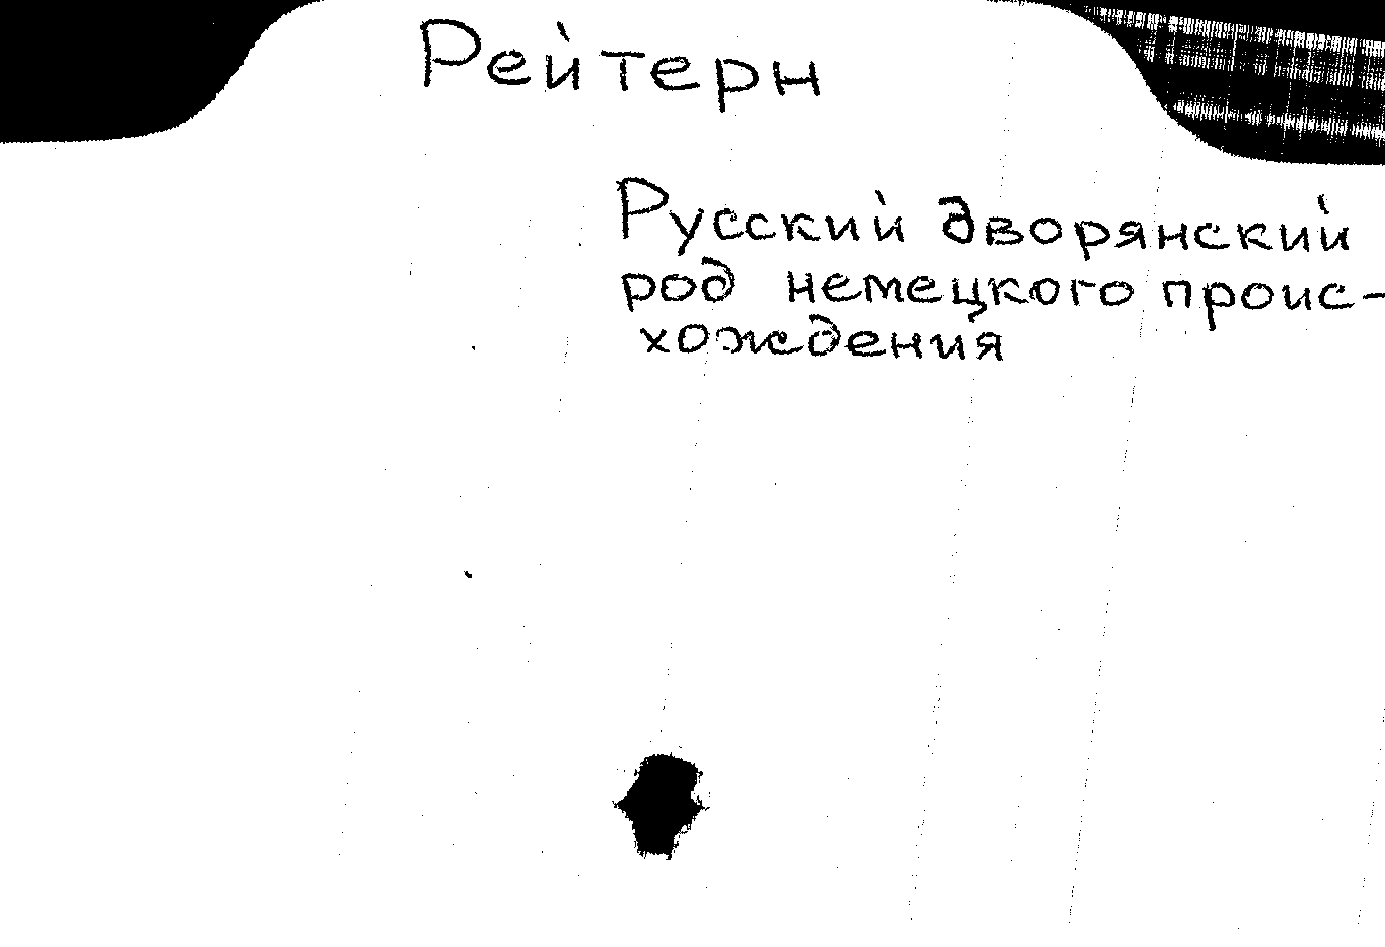 Рейтерн
Русский дворянский
род немецкого проис-
хождения